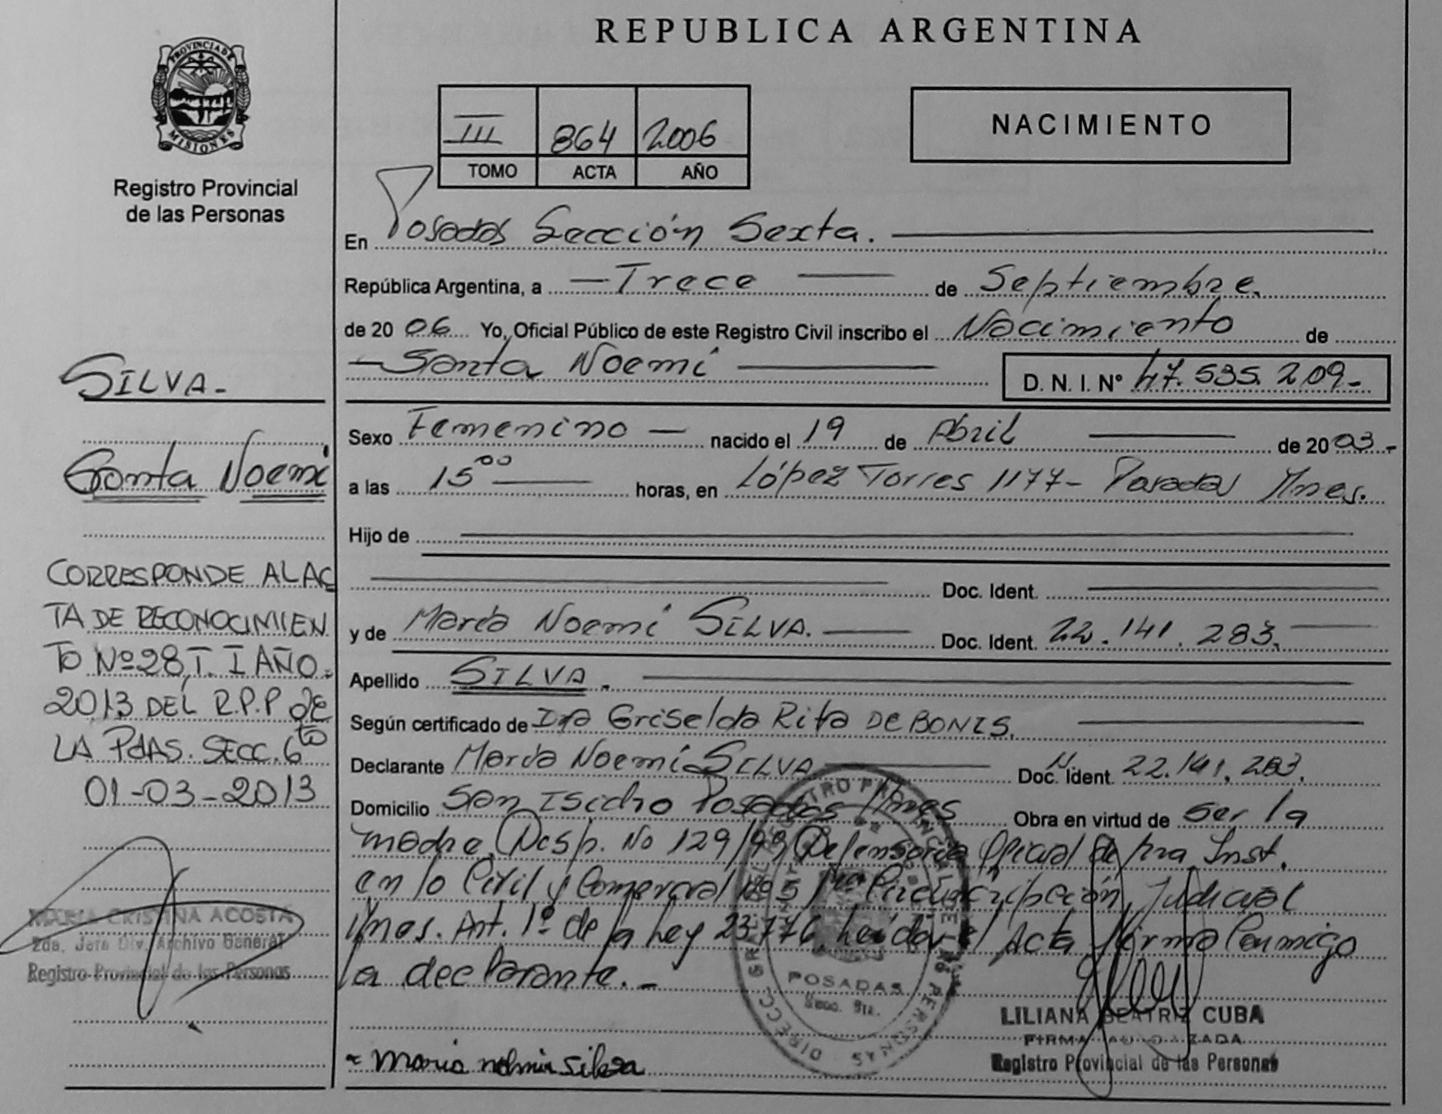 REPUBLICA ARGENTINA
PROVINCIA DE MISIONES
Registro Provincial
de las Personas
III 864 2006
TOMO ACTA AÑO
NACIMIENTO
En Posadas Sección Sexta.
República Argentina, a Trece de Septiembre
de 2006 Yo, Oficial Público de este Registro Civil inscribo el Nacimiento de
Santa Noemí D. N. I. Nº 47.535.209-
Sexo Femenino nacido el 19 de Abril de 2003-
a las 15⁰⁰ horas, en López Torres 1177- Posadas Mnes.
Hijo de
Doc. Ident.
y de María Noemí SILVA. Doc. Ident. 22.141.283.
Apellido SILVA.
Según certificado de Dra Griselda Rita DE BONIS.
Declarante María Noemí SILVA Doc. Ident. 22.141.283.
Domicilio San Isidro Posadas Mnes Obra en virtud de ser la
madre, Disp. No 129/ Defensoría Oficial de 1ra Inst.
en lo Civil y Comercial Nº5 1ra Circunscripción Judicial
Mnes. Art. 1º de la Ley 23.776, leída el Acta firma Conmigo
la declarante.-
Maria Silva
LILIANA BEATRIZ CUBA
FIRMA AUTORIZADA
Registro Provincial de las Personas
POSADAS
SILVA-
Santa Noemi
CORRESPONDE A LA AC
TA DE RECONOCIMIEN
TO Nº28,T. I AÑO.
2013 DEL R.P.P de
LA PdAS. SECC. 6ta
01-03-2013
MARIA CRISTINA ACOSTA
2da. Jefa Div. Archivo General
Registro Provincial de las Personas